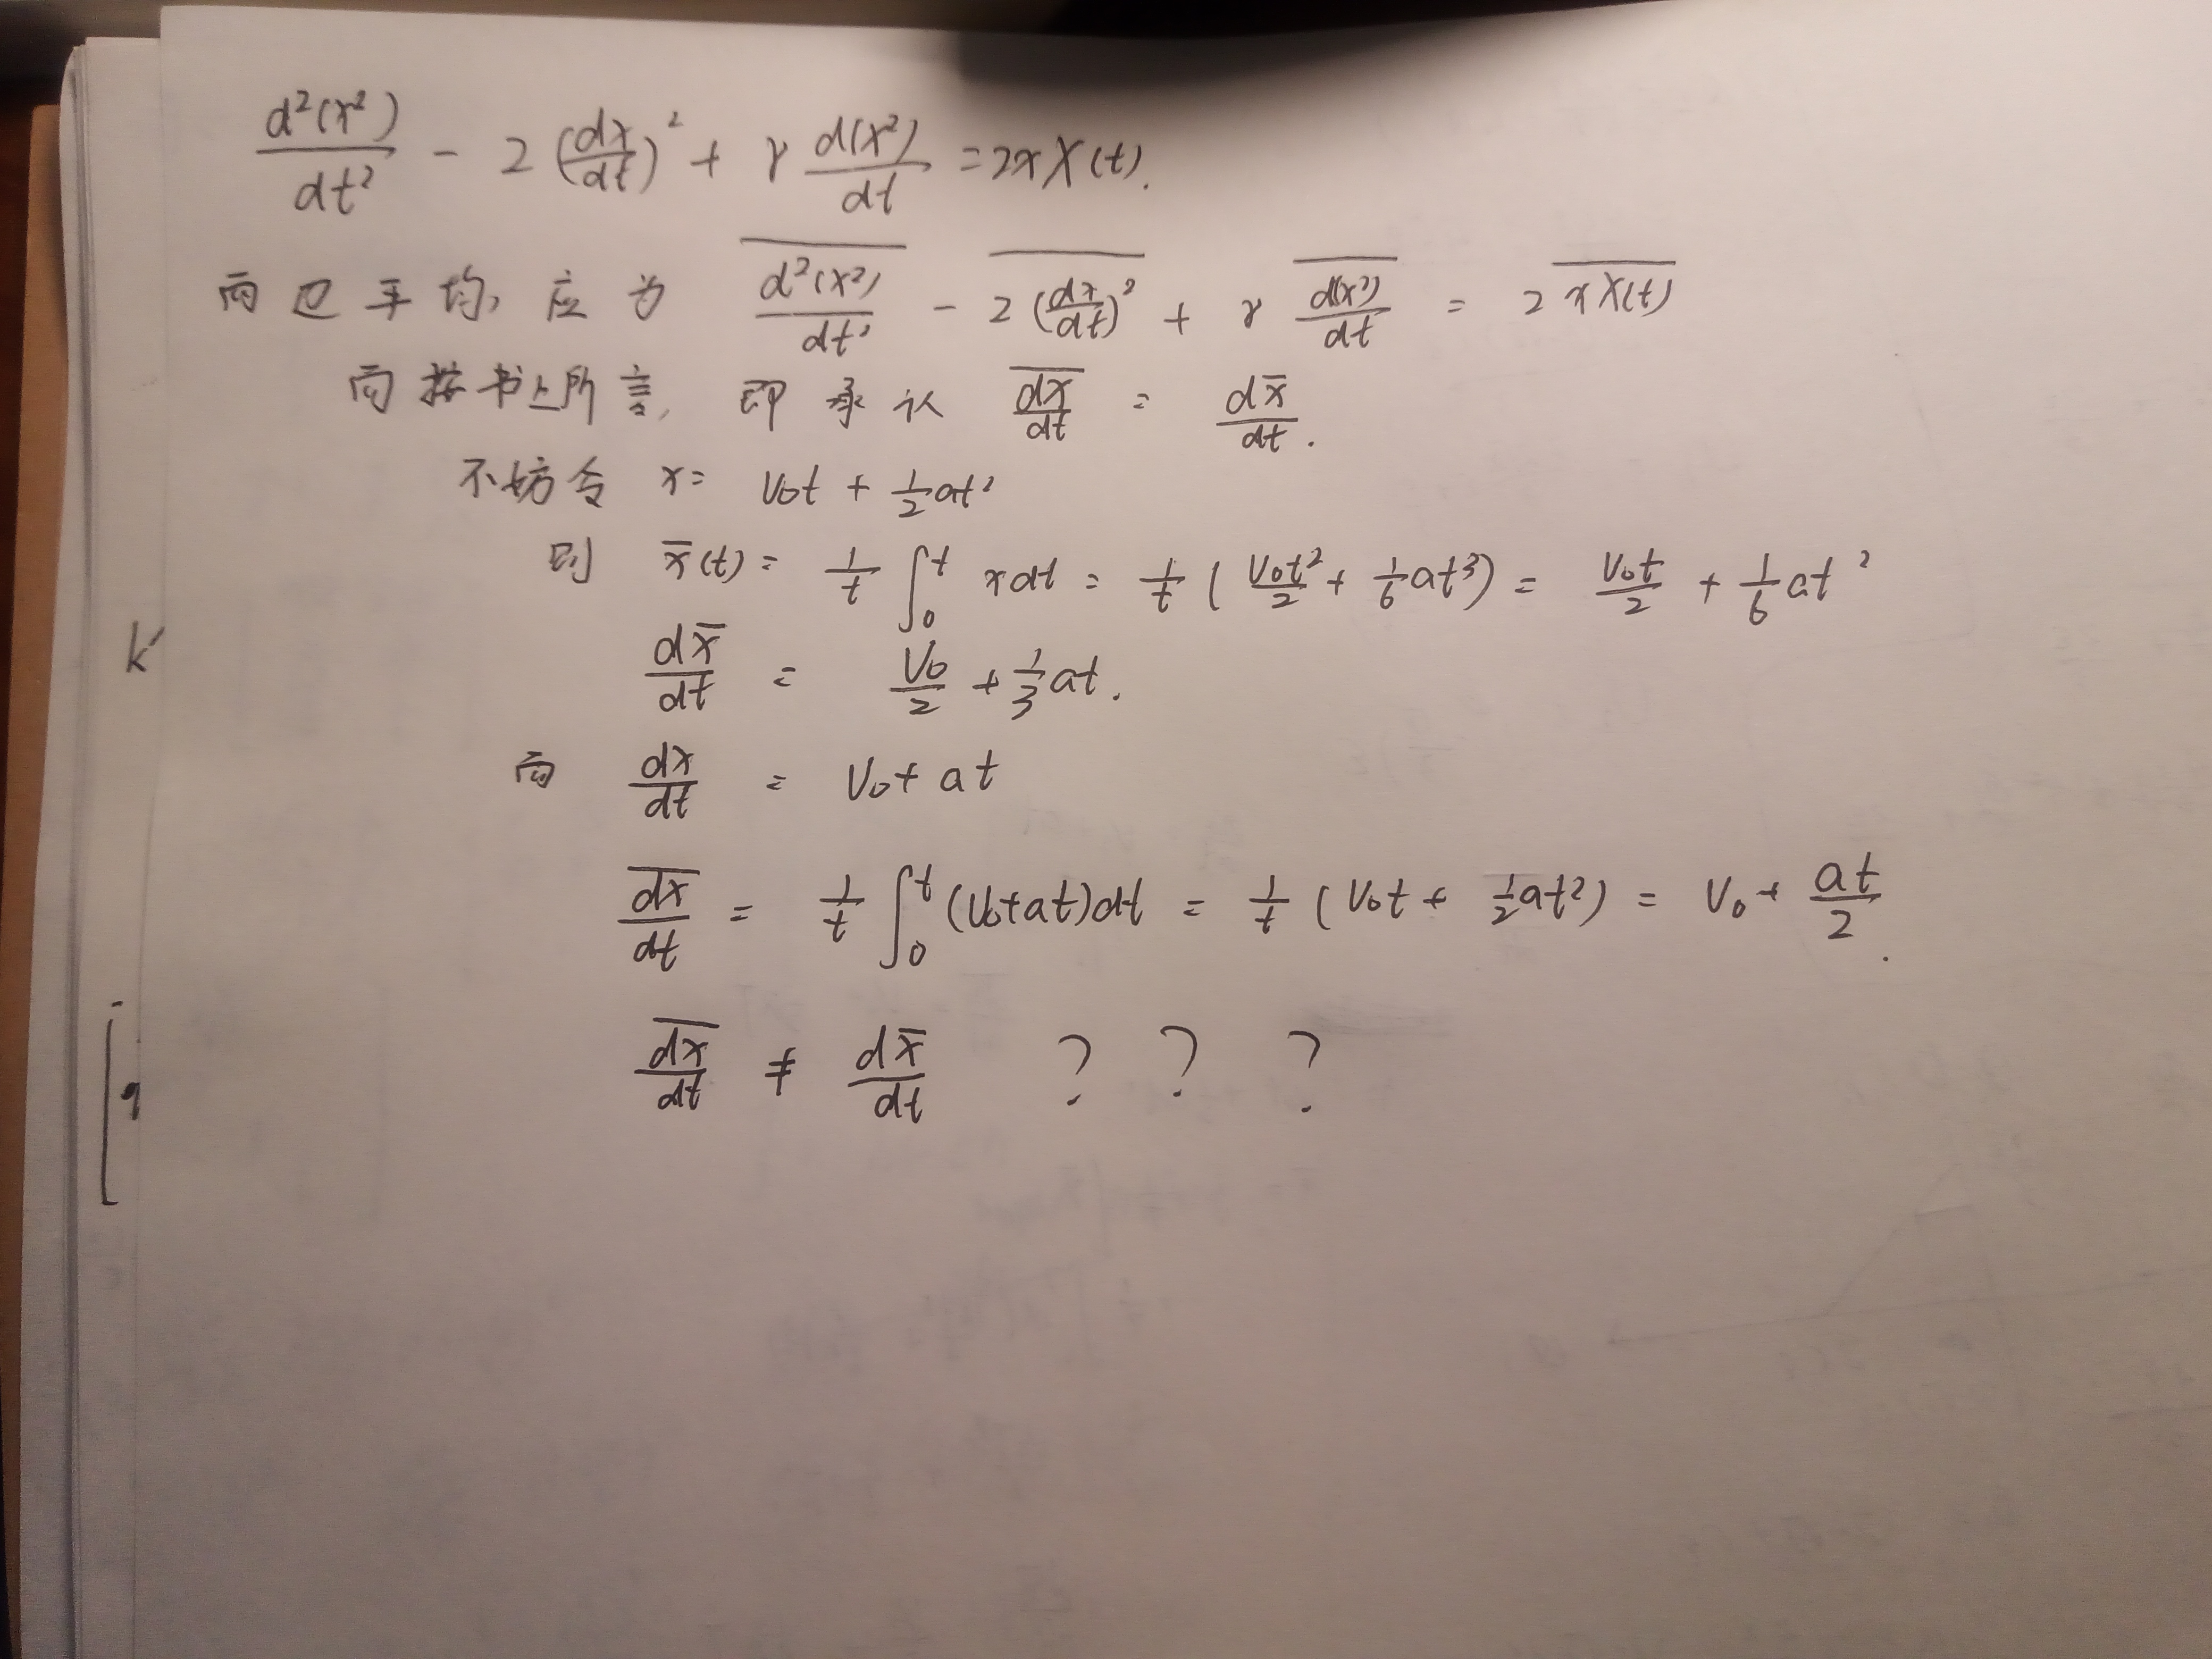 d²(x²)/dt² - 2(dx/dt)² + γ d(x²)/dt = 2xX(t).
两边平均, 应为 \overline{d²(x²)/dt²} - \overline{2(dx/dt)²} + γ \overline{d(x²)/dt} = 2\overline{xX(t)}
而按书上所言, 即承认 \overline{dx/dt} = d\bar{x}/dt.
不妨令 x = V₀t + ½at²
则 \bar{x}(t) = 1/t ∫₀ᵗ x dt = 1/t (V₀t²/2 + 1/6 at³) = V₀t/2 + 1/6 at²
k'
d\bar{x}/dt = V₀/2 + 1/3 at.
而 dx/dt = V₀ + at
\overline{dx/dt} = 1/t ∫₀ᵗ (V₀+at)dt = 1/t (V₀t + ½at²) = V₀ + at/2.
\overline{dx/dt} ≠ d\bar{x}/dt ? ? ?